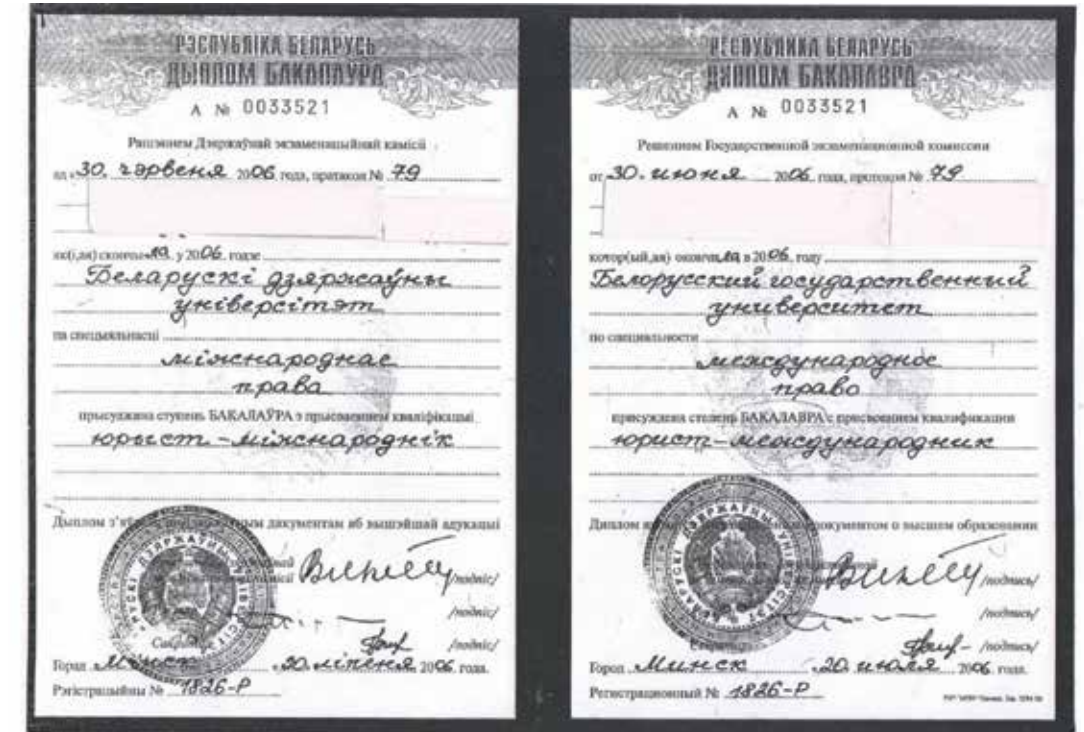 РЭСПУБЛІКА БЕЛАРУСЬ
ДЫПЛОМ БАКАЛАЎРА
А № 0033521
Рашэннем Дзяржаўнай экзаменацыйнай камісіі
ад «30» чэрвеня 2006 года, пратакол № 79
які(ая) скончыла у 2006 годзе
Беларускі дзяржаўны
універсітэт
па спецыяльнасці
міжнароднае
права
прысуджана ступень БАКАЛАЎРА з прысваеннем кваліфікацыі
юрыст-міжнароднік
Дыплом з'яўляецца дзяржаўным дакументам аб вышэйшай адукацыі
/подпіс/
/подпіс/
/подпіс/
Горад Мінск «20» ліпеня 2006 года.
Рэгістрацыйны № 1826-Р
РЕСПУБЛИКА БЕЛАРУСЬ
ДИПЛОМ БАКАЛАВРА
А № 0033521
Решением Государственной экзаменационной комиссии
от «30» июня 2006 года, протокол № 79
котор(ый,ая) окончила в 2006 году
Белорусский государственный
университет
по специальности
международное
право
присуждена степень БАКАЛАВРА с присвоением квалификации
юрист-международник
Диплом документом о высшем образовании
/подпись/
/подпись/
/подпись/
Город Минск «20» июля 2006 года.
Регистрационный № 1826-Р